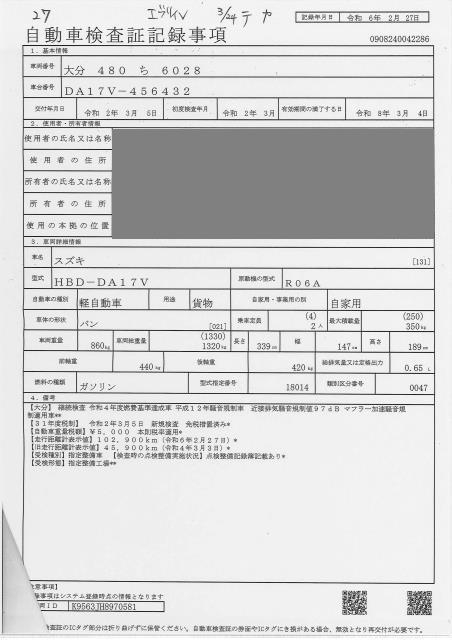 27 エブリイV 3/24テカ
記録年月日 令和 6年 2月 27日
自動車検査証記録事項 0908240042286
1. 基本情報
車両番号 大分 480 ち 6028
車台番号 DA17V-456432
交付年月日 令和 2年 3月 5日 初度検査年月 令和 2年 3月 有効期間の満了する日 令和 8年 3月 4日
2. 使用者・所有者情報
使用者の氏名又は名称
使用者の住所
所有者の氏名又は名称
所有者の住所
使用の本拠の位置
3. 車両詳細情報
車名 スズキ [131]
型式 HBD-DA17V 原動機の型式 R06A
自動車の種別 軽自動車 用途 貨物 自家用・事業用の別 自家用
車体の形状 バン [021] 乗車定員 (4) 2人 最大積載量 (250) 350kg
車両重量 860kg 車両総重量 (1330) 1320kg 長さ 339cm 幅 147cm 高さ 189cm
前軸重 440kg 後軸重 420kg 総排気量又は定格出力 0.65 L
燃料の種類 ガソリン 型式指定番号 18014 類別区分番号 0047
4. 備考
【大分】 継続検査 令和4年度燃費基準達成車 平成12年騒音規制車 近接排気騒音規制値97dB マフラー加速騒音規
制適用車**
【31年度税制】 令和2年3月5日 新規検査 免税措置済み*
【自動車重量税額】¥5,000 本則税率適用*
【走行距離計表示値】102,900km（令和6年2月27日）*
【旧走行距離計表示値】45,900km（令和4年3月3日）*
【受検種別】指定整備車 【検査時の点検整備実施状況】点検整備記録簿記載あり*
【受検形態】指定整備工場**
注意事項】
事項はシステム登録時点の情報となります
ID K9563JH8970581
検査証のICタグ部分は折り曲げずに保管ください。自動車検査証の券面やICタグにき損がある場合、無効となり再交付が必要です。